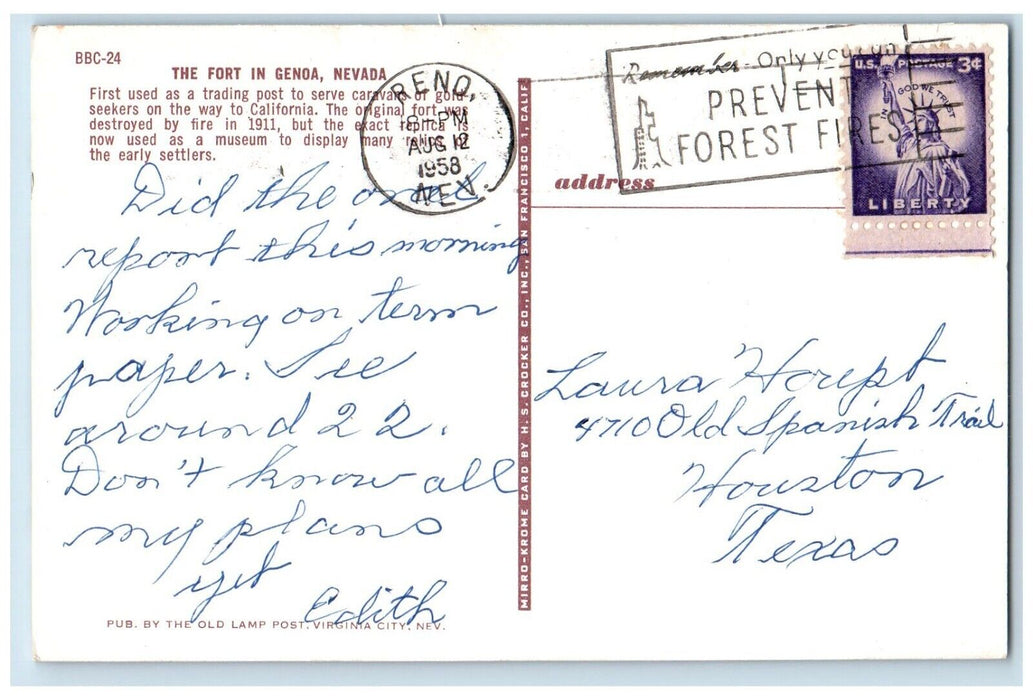 BBC-24
THE FORT IN GENOA, NEVADA
First used as a trading post to serve caravans of gold
seekers on the way to California. The original fort was
destroyed by fire in 1911, but the exact replica is
now used as a museum to display many relics of
the early settlers.
RENO,
8 PM
AUG 12
1958
NEV.
Remember - Only you can
PREVENT
FOREST FIRES
U.S. POSTAGE 3¢
IN GOD WE TRUST
LIBERTY
address
Did the oral
report this morning
Working on term
paper. See
around 22.
Don't know all
my plans
yet
Edith
Laura Houpt
4710 Old Spanish Trail
Houston
Texas
MIRRO-KROME CARD BY H. S. CROCKER CO., INC., SAN FRANCISCO 1, CALIF
PUB. BY THE OLD LAMP POST, VIRGINIA CITY, NEV.